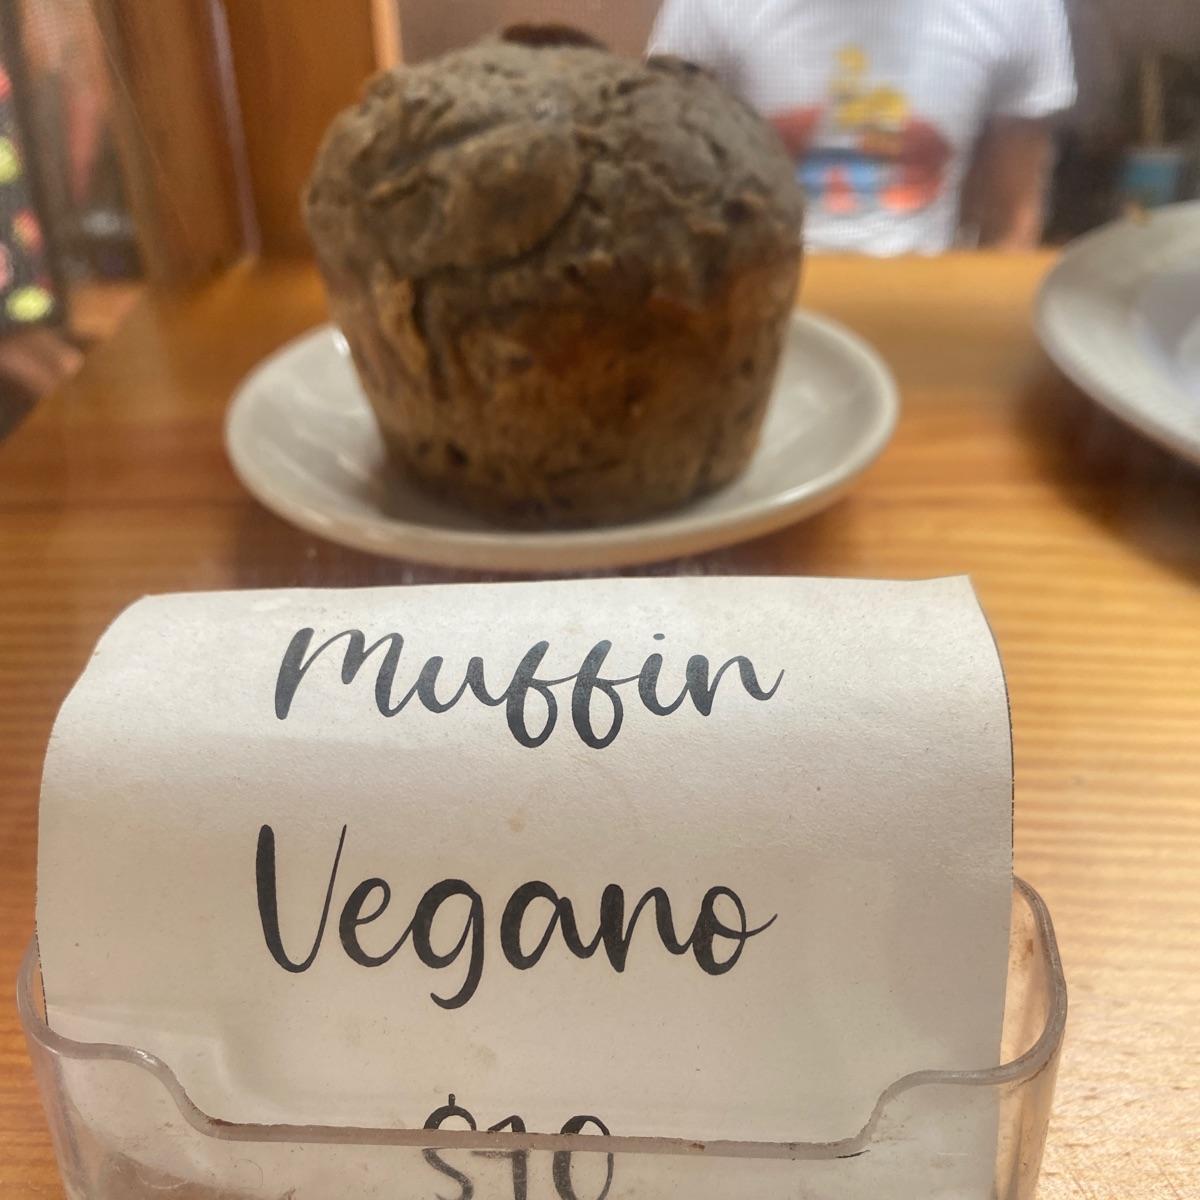 Muffin
Vegano
$70